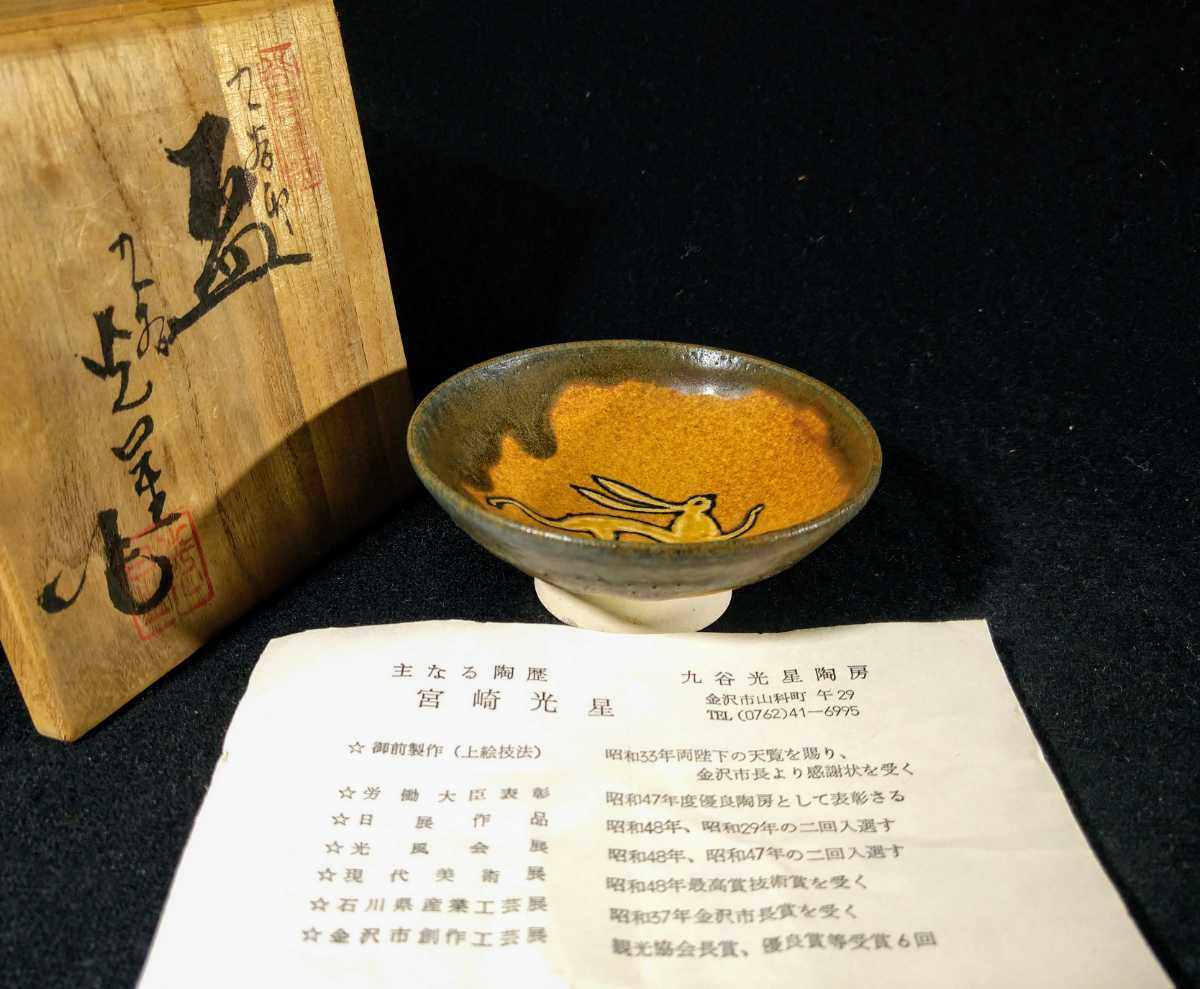 盃
光星
主なる陶歴
宮崎光星
九谷光星陶房
金沢市山科町 午29
TEL (0762)41-6995
☆御前製作(上絵技法) 昭和33年両陛下の天覧を賜り、
金沢市長より感謝状を受く
☆労働大臣表彰 昭和47年度優良陶房として表彰さる
☆日展作品 昭和48年、昭和29年の二回入選す
☆光風会展 昭和48年、昭和47年の二回入選す
☆現代美術展 昭和48年最高賞技術賞を受く
☆石川県産業工芸展 昭和37年金沢市長賞を受く
☆金沢市創作工芸展 観光協会長賞、優良賞等受賞6回